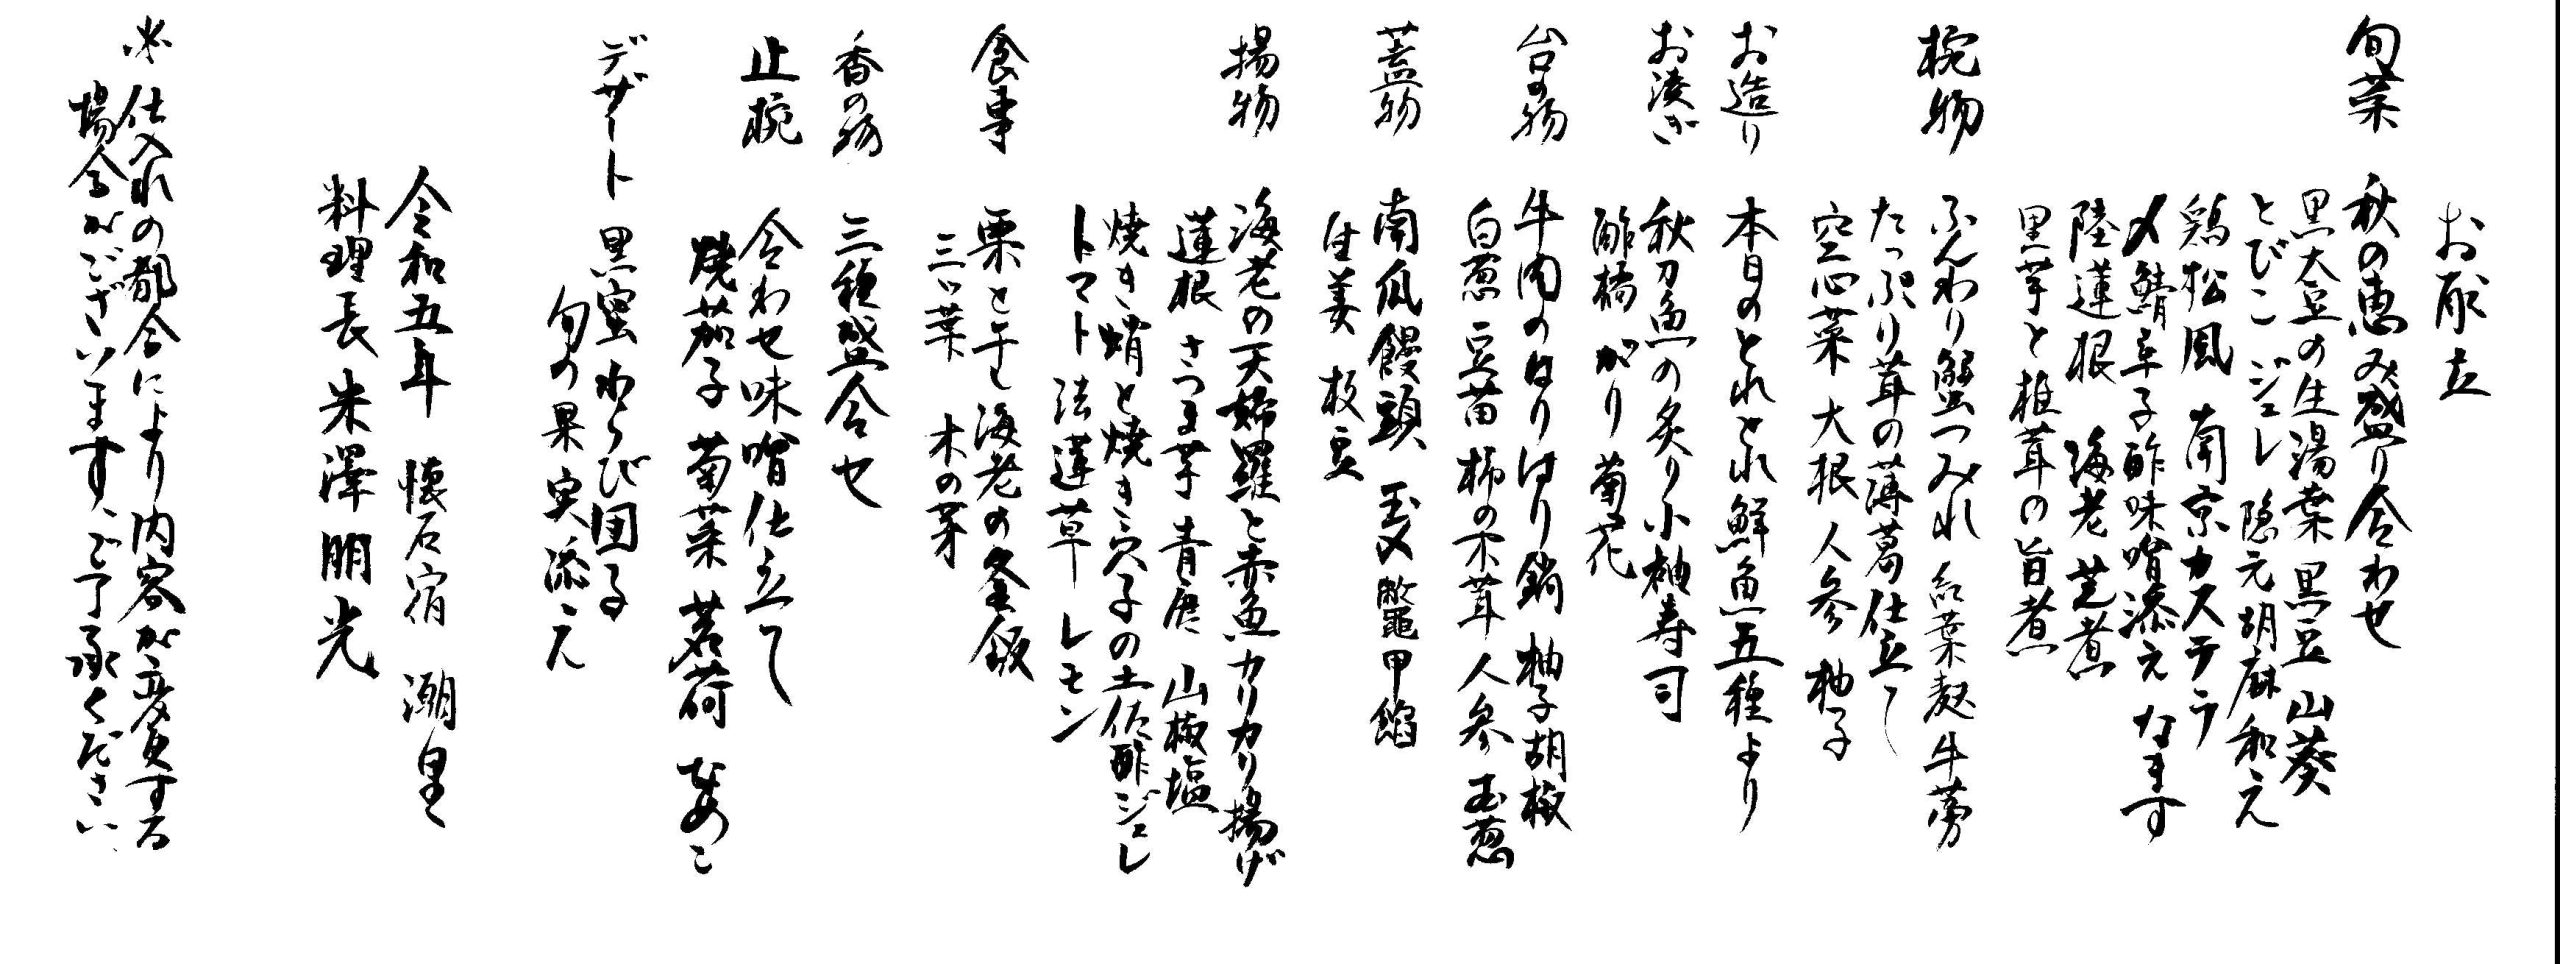 お献立
旬菜 秋の恵み盛り合わせ
黒大豆の生湯葉 黒豆 山葵
とびこ ジュレ 隠元胡麻和え
鶏松風 南京カステラ
〆鯖辛子酢味噌添え なます
陸蓮根 海老芝煮
里芋と椎茸の旨煮
椀物 ふんわり蟹つみれ 紅葉麸 牛蒡
たっぷり茸の薄葛仕立て
空心菜 大根 人参 柚子
お造り 本日のとれとれ鮮魚五種より
お凌ぎ 秋刀魚の炙り小袖寿司
酢橘 がり 菊花
台の物 牛肉のはりはり鍋 柚子胡椒
白葱 豆苗 柿の木茸 人参 玉葱
蓋物 南瓜饅頭 玉〆 鼈甲餡
生姜 枝豆
揚物 海老の天婦羅と赤魚カリカリ揚げ
蓮根 さつま芋 青唐 山椒塩
焼き蛸と焼き穴子の土佐酢ジュレ
トマト 法蓮草 レモン
食事 栗と干し海老の釜飯
三ッ葉 木の芽
香の物 三種盛合せ
止椀 合わせ味噌仕立て
焼茄子 菊菜 茗荷 なめこ
デザート 黒蜜わらび団子
旬の果実添え
令和五年 懐石宿 潮里
料理長 米澤朋光
※ 仕入れの都合により内容が変更する
場合がございます、ご了承ください、